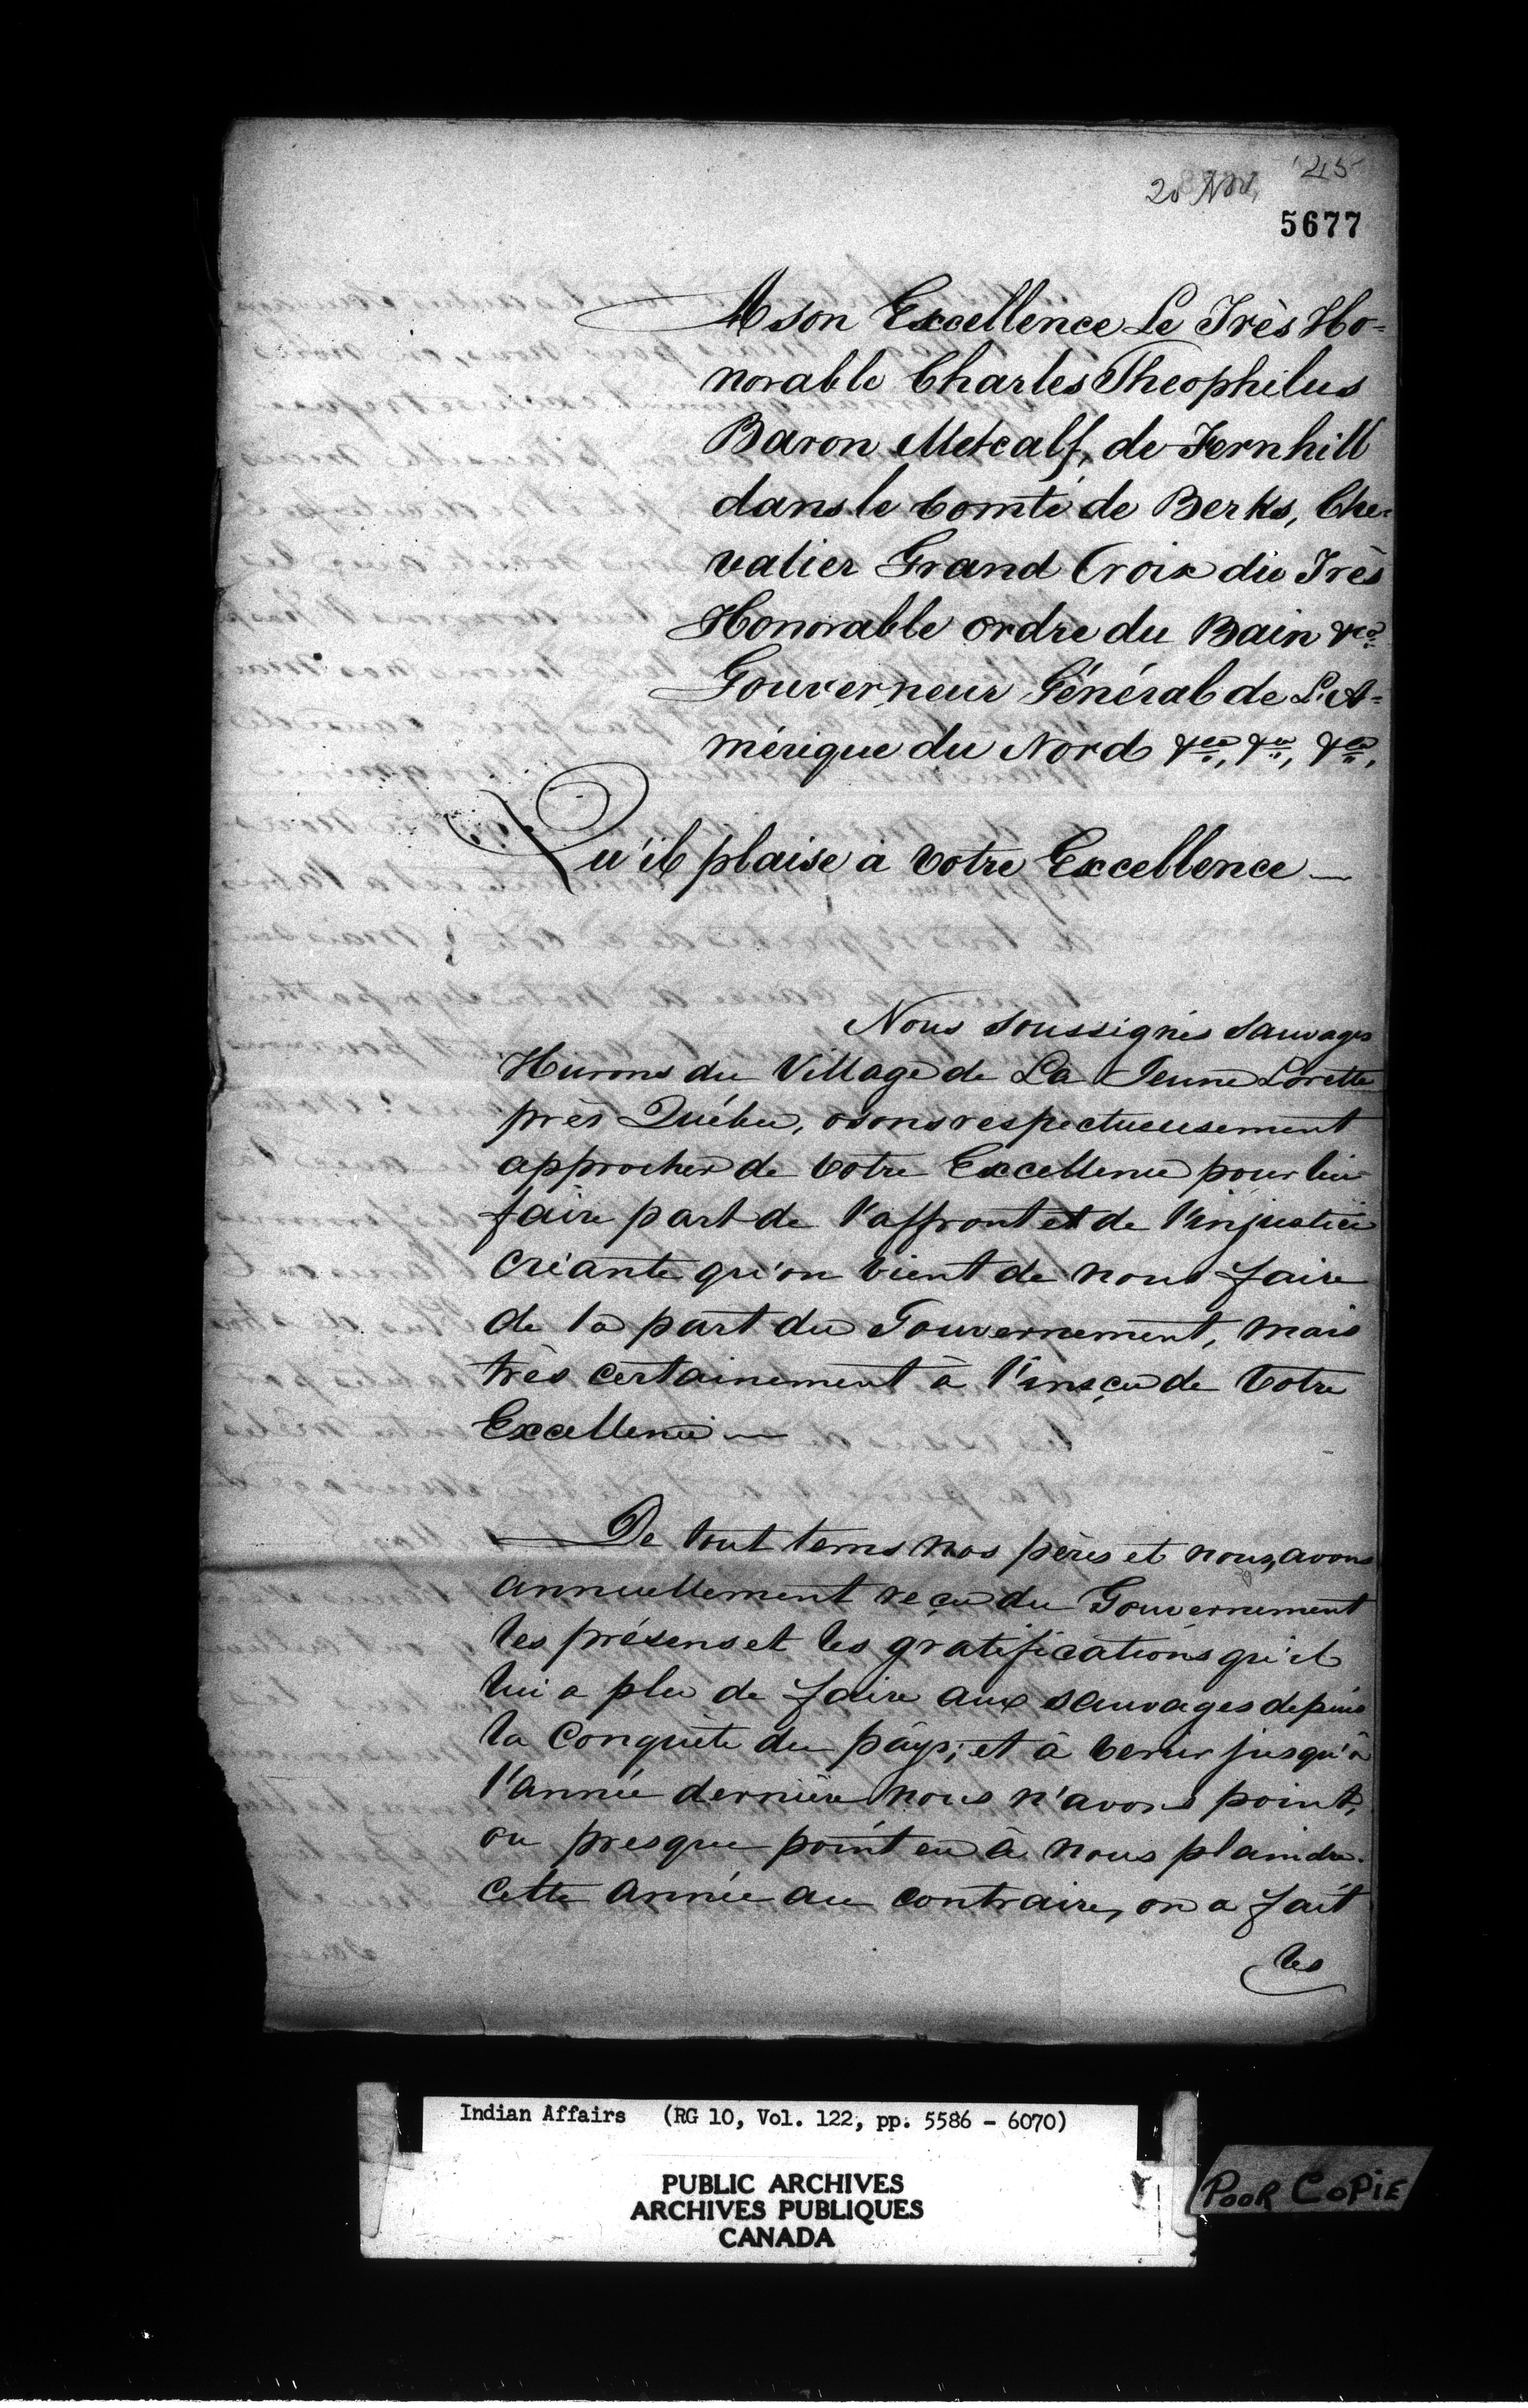 20 Nov, '45
5677
A son Excellence Le Très Ho=
norable Charles Theophilus
Baron Metcalf, de Fernhill
dans le Comté de Berks, Che=
valier Grand Croix du Très
Honorable ordre du Bain &ca
Gouverneur Général de L'A=
mérique du Nord &ca, &ca, &ca,
Qu'il plaise à Votre Excellence —
Nous soussignés Sauvages
Hurons du Village de La Jeune Lorette
près Québec, osons respectueusement
approcher de Votre Excellence pour lui
faire part de l'affront et de l'injustice
criante qu'on vient de nous faire
de la part du Gouvernement, mais
très certainement à l'insçu de Votre
Excellence —
— De tout tems nos pères et nous, avons
annuellement reçu du Gouvernement
les présens et les gratifications qu'il
lui a plu de faire aux sauvages depuis
la Conquête du päys; et à venir jusqu'à
l'année dernière nous n'avons point,
ou presque point eu à nous plaindre.
Cette année au contraire, on a fait
les
Indian Affairs (RG 10, Vol. 122, pp. 5586 - 6070)
PUBLIC ARCHIVES
ARCHIVES PUBLIQUES
CANADA
POOR COPIE